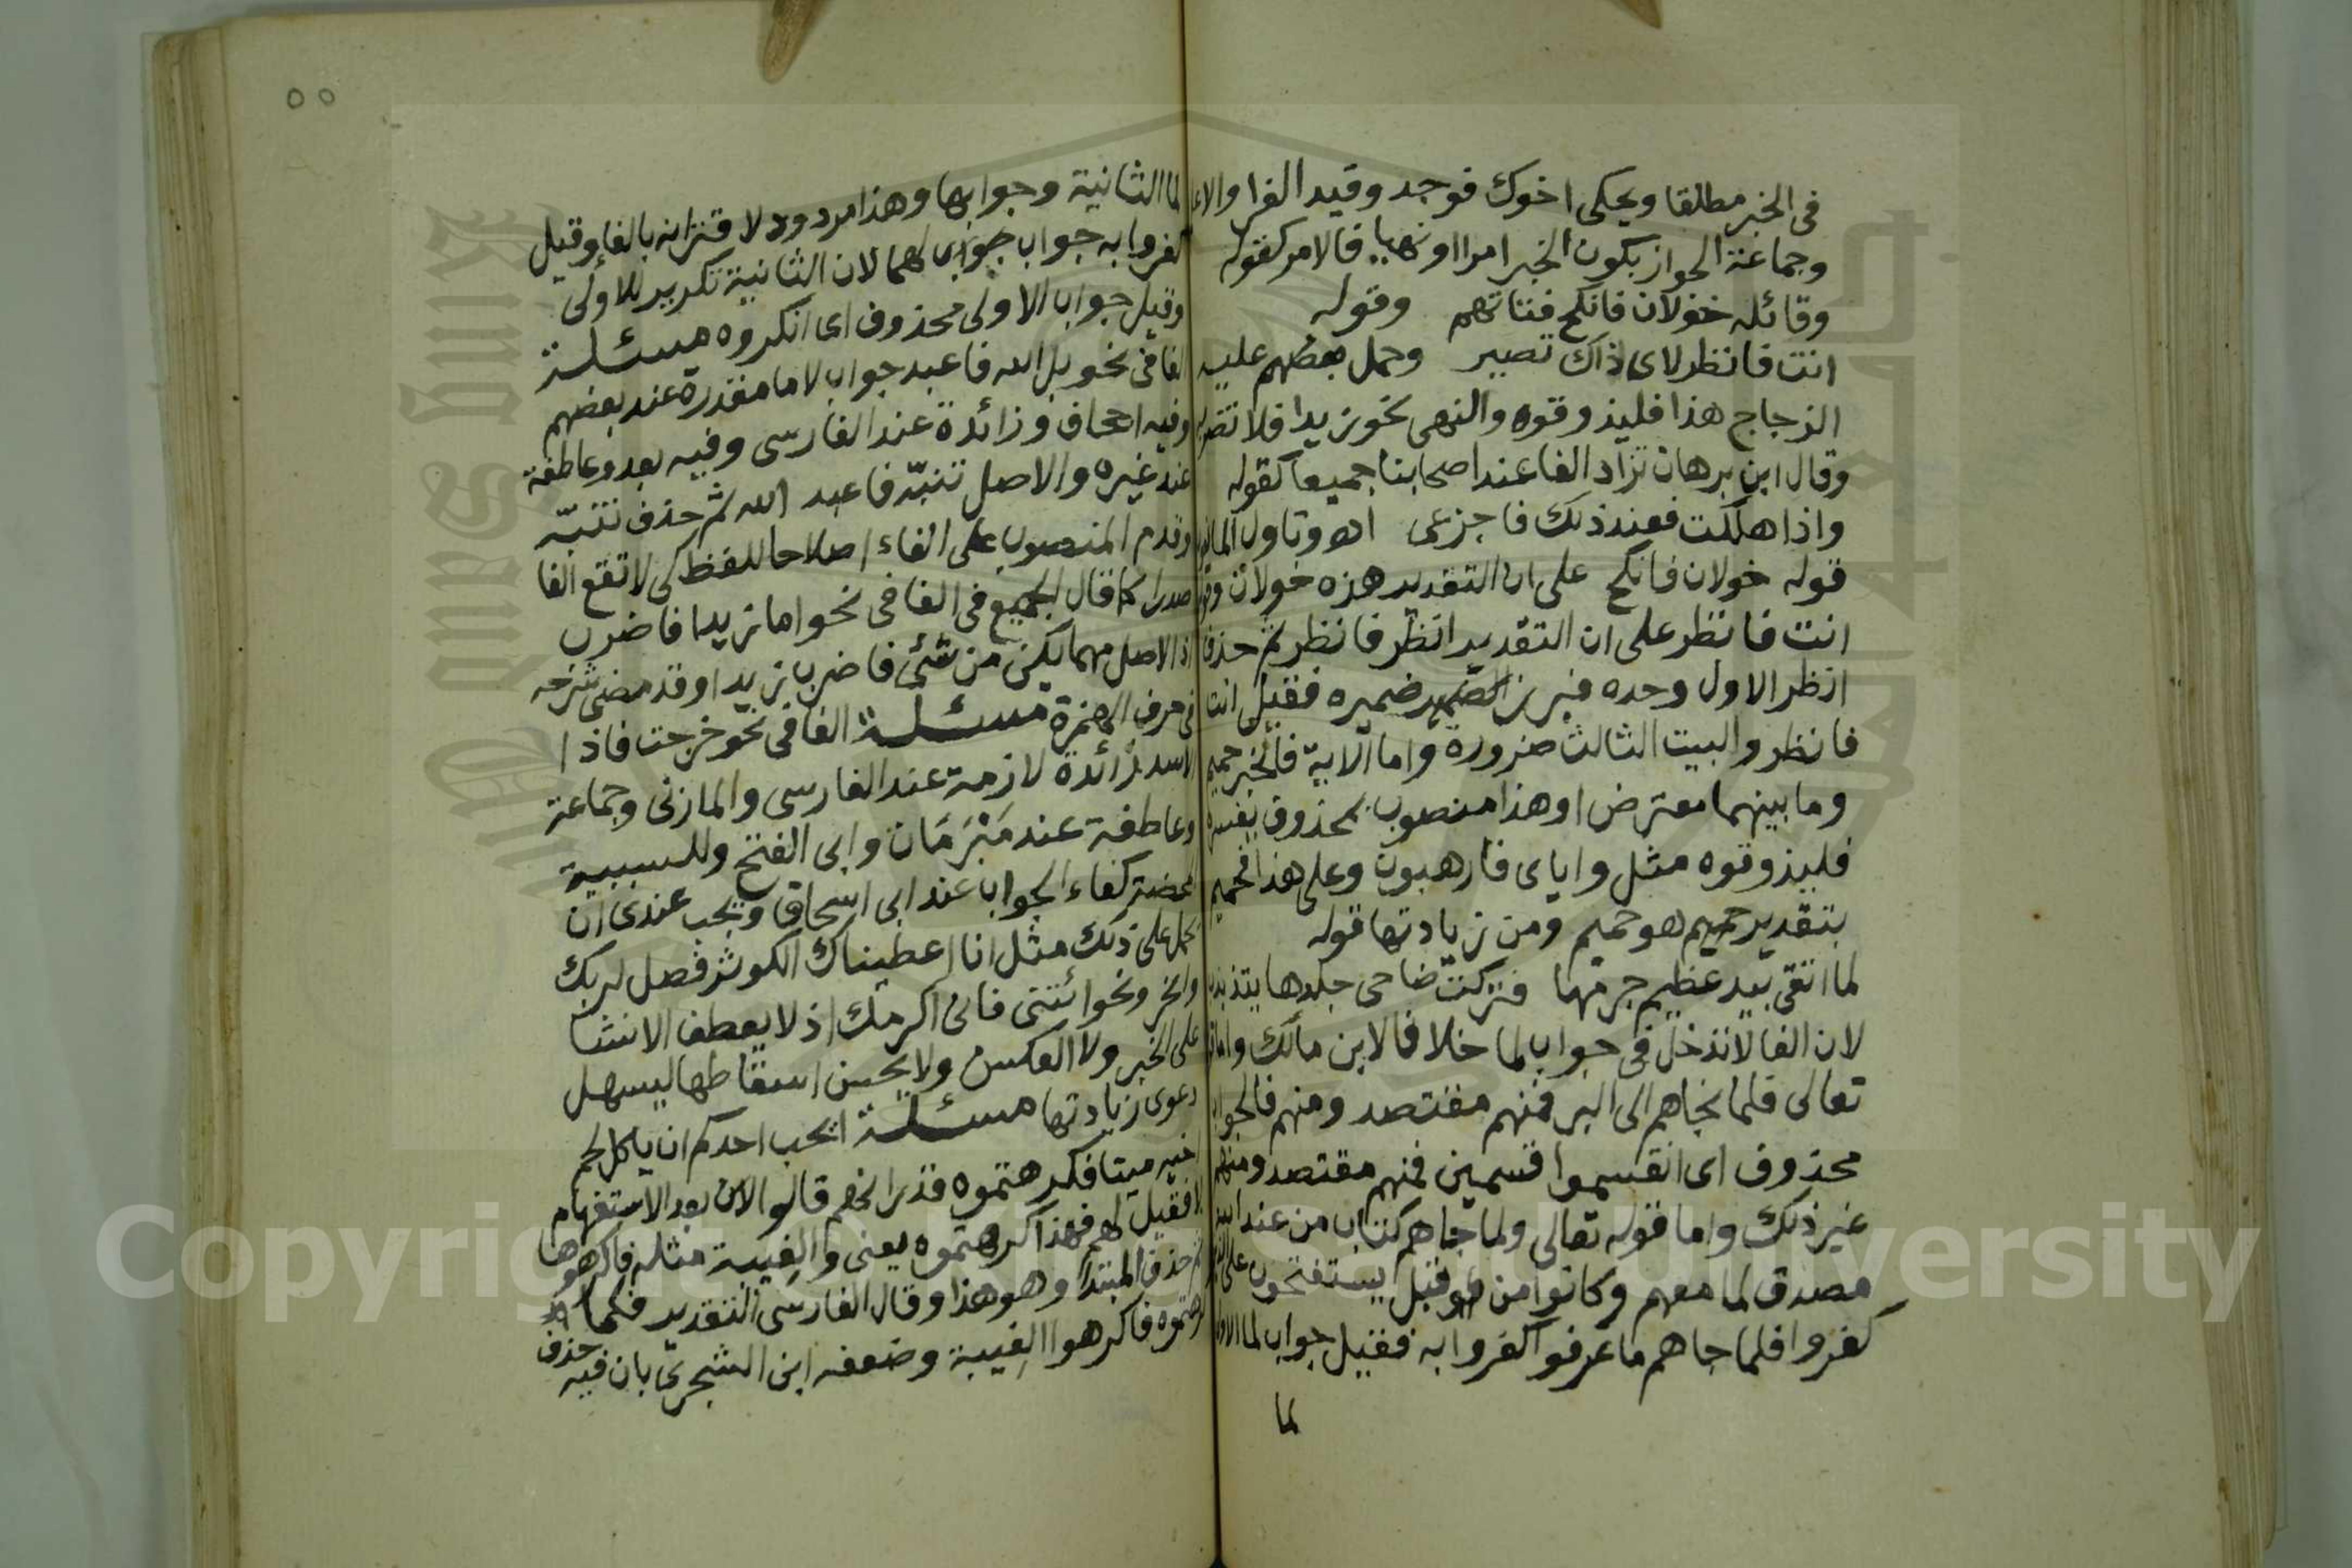 في الخبر مطلقا ويحكى اخوك فوجد وقيد الفرا والاعلم
وجماعة الجواز بكون الخبر امرا او نهيا فالامر كقوله
وقائلة خولان فانكح فتاتهم وقوله
انت فانظر لاى ذاك تصير وحمل بعضهم عليه
الزجاج هذا فليذوقوه والنهى نحو زيدا فلا تضربه
وقال ابن برهان تزاد الفا عند اصحابنا جميعا كقوله
واذا هلكت فعند ذلك فاجزعى اه وتاول المانعون
قوله خولان فانكح على ان التقدير هذه خولان وقوله
انت فانظر على ان التقدير انظر فانظر ثم حذف
انظر الاول وحده فبرز ضميره فقيل انت
فانظر والبيت الثالث ضرورة واما الآية فالخبر حميم
وما بينهما معترض او هذا منصوب بمحذوف يفسره
فليذوقوه مثل واياى فارهبون وعلى هذا فحميم
بتقدير حميم هو حميم ومن زيادتها قوله
لما اتقى بيد عظيم جرمها فتركت ضاحى جلدها يتذبذب
لان الفا لا تدخل فى جواب لما خلافا لابن مالك واما
تعالى فلما نجاهم الى البر فمنهم مقتصد ومنهم فالجواب
محذوف اى انقسموا قسمين فمنهم مقتصد ومنهم
غير ذلك واما قوله تعالى ولما جاهم كتاب من عند الله
مصدق لما معهم وكانوا من قبل يستفتحون على الذين
كفروا فلما جاهم ما عرفوا كفروا به فقيل جواب لما الاولى
لما
٥٥
لما الثانية وجوابها وهذا مردود لاقترانه بالفا وقيل
كفروا به جواب لهما لان الثانية تكرير للاولى
وقيل جواب الاولى محذوف اى انكروه مسئلة
الفا فى نحو بل الله فاعبد جواب لاما مقدرة عند بعضهم
وفيه اجحاف وزائدة عند الفارسى وفيه بعد وعاطفة
عند غيره والاصل تنبّه فاعبد الله ثم حذف تنبّه
وقدم المنصوب على الفاء اصلاحا للفظ كى لا تقع الفا
صدرا كما قال الجميع فى الفا فى نحو اما زيدا فاضرب
اذ الاصل مهما يكن من شئ فاضرب زيدا وقد مضى شرحه
فى حرف الهمزة مسئلة الفا فى نحو خرجت فاذا
الاسد زائدة لازمة عند الفارسى والمازنى وجماعة
وعاطفة عند مَبْرَمَان وابى الفتح وللسببية
المحضة كفاء الجواب عند ابى اسحاق ويجب عندى ان
يحمل على ذلك مثل انا اعطيناك الكوثر فصل لربك
وانحر ونحو ائتنى فانى اكرمك اذ لا يعطف الانشا
على الخبر ولا العكس ولا يحسن اسقاطها ليسهل
دعوى زيادتها مسئلة ايحب احدكم ان ياكل لحم
اخيه ميتا فكرهتموه قدر انهم قالوا لا بعد الاستفهام
فقيل لهم فهذا كرهتموه يعنى والغيبة مثله فاكرهوها
ثم حذف المبتدا وهو هذا وقال الفارسى التقدير فكما
كرهتموه فاكرهوا الغيبة وضعفه ابن الشجرى بان فيه حذف